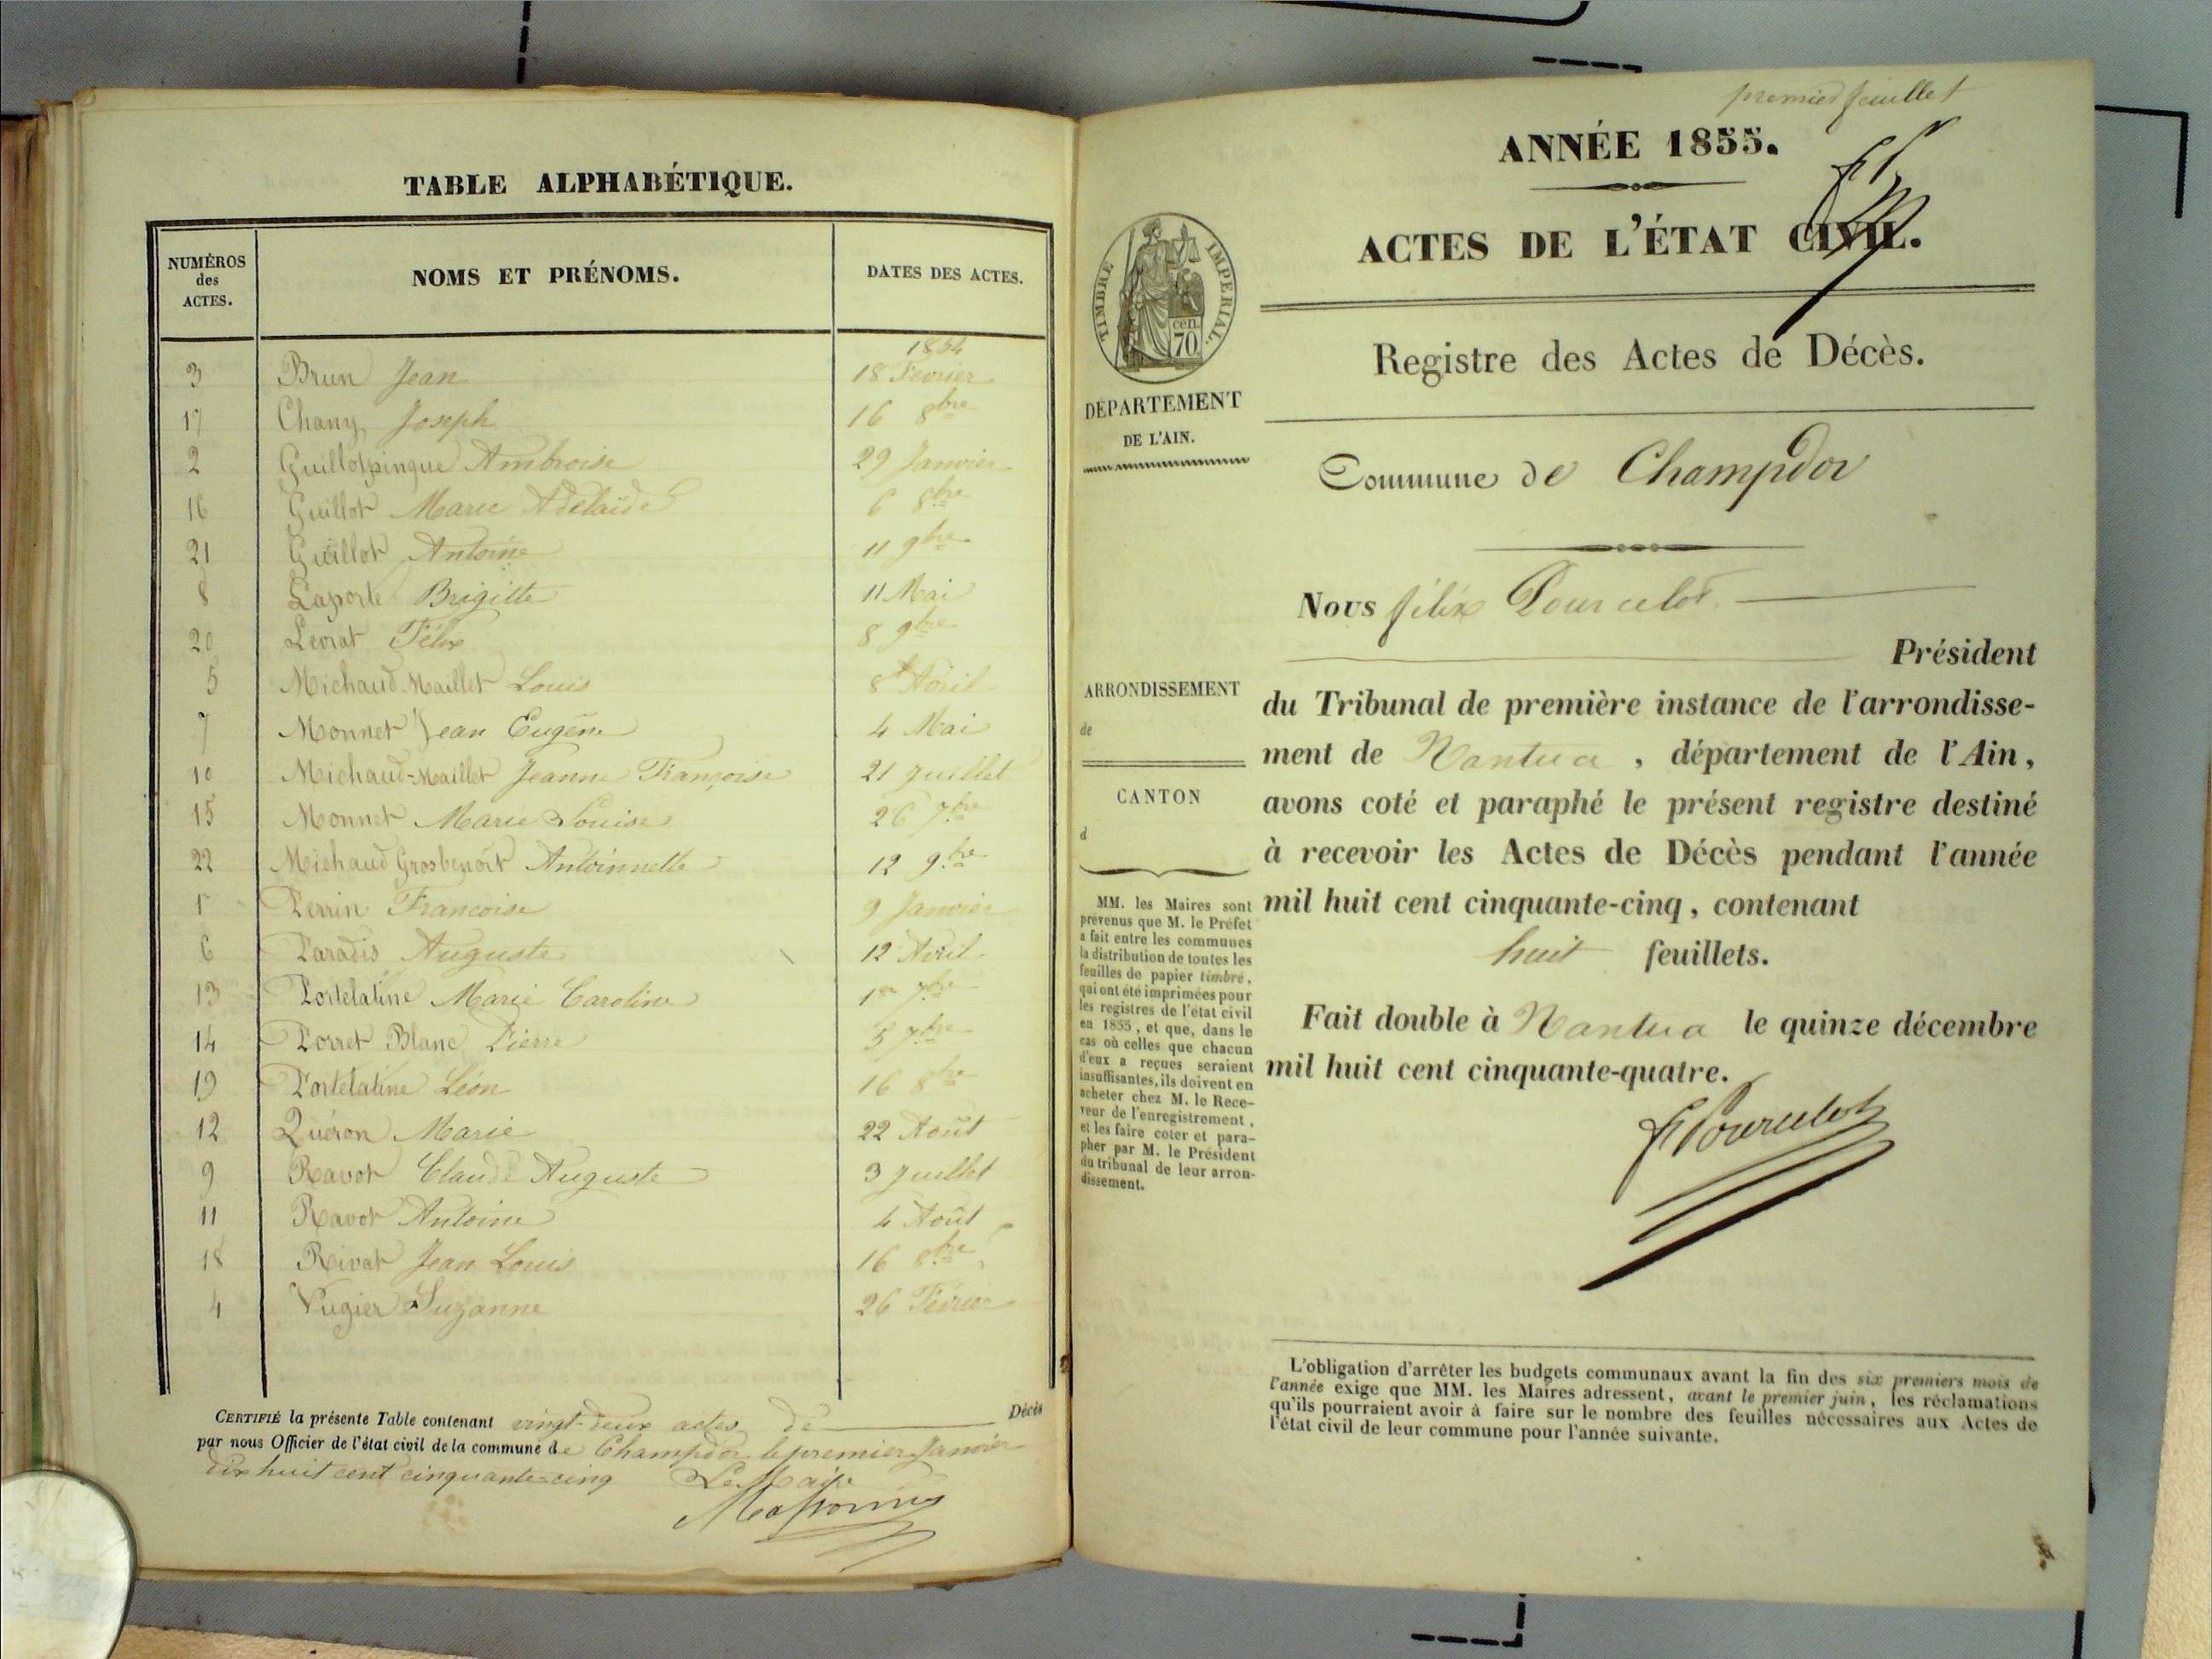 TABLE ALPHABÉTIQUE.
NUMÉROS
des
ACTES.
NOMS ET PRÉNOMS.
DATES DES ACTES.
1854
3 Brun Jean 18 Février
17 Chany Joseph 16 8bre
2 Guillotpingue Ambroise 29 Janvier
16 Guillot Marie Adelaïde 6 8bre
21 Guillot Antoine 11 9bre
8 Laporte Brigitte 11 Mai
20 Levrat Félix 8 9bre
5 Michaud-Maillet Louis 8 Avril
7 Monnet Jean Eugène 4 Mai
10 Michaud-Maillet Jeanne Françoise 21 Juillet
15 Monnet Marie Louise 26 7bre
22 Michaud Grosbenoit Antoinnette 12 9bre
1 Perrin Francoise 9 Janvier
6 Paradis Auguste 12 Avril
13 Portelatine Marie Caroline 1er 7bre
14 Porret Blanc Pierre 5 7bre
19 Portelatine Léon 16 8bre
12 Quéron Marie 22 Août
9 Ravot Claude Auguste 3 Juillet
11 Ravot Antoine 4 Août
18 Rivat Jean Louis 16 8bre
4 Vugier Suzanne 26 Février
CERTIFIÉ la présente Table contenant vingt-deux actes de Décès
par nous Officier de l'état civil de la commune de Champdor le premier Janvier
dix huit cent cinquante=cinq Le Maire
premier feuillet
ANNÉE 1855.
ACTES DE L'ÉTAT CIVIL.
TIMBRE IMPÉRIAL.
cen.
70
Registre des Actes de Décès.
DÉPARTEMENT
DE L'AIN.
Commune de Champdor
Nous félix Pourcelot
Président
ARRONDISSEMENT
de
CANTON
d
du Tribunal de première instance de l'arrondisse-
ment de Nantua, département de l'Ain,
avons coté et paraphé le présent registre destiné
à recevoir les Actes de Décès pendant l'année
mil huit cent cinquante-cinq, contenant
huit feuillets.
Fait double à Nantua le quinze décembre
mil huit cent cinquante-quatre.
F Pourcelot
MM. les Maires sont
prévenus que M. le Préfet
a fait entre les communes
la distribution de toutes les
feuilles de papier timbré,
qui ont été imprimées pour
les registres de l'état civil
en 1855, et que, dans le
cas où celles que chacun
d'eux a reçues seraient
insuffisantes, ils doivent en
acheter chez M. le Rece-
veur de l'enregistrement,
et les faire coter et para-
pher par M. le Président
du tribunal de leur arron-
dissement.
L'obligation d'arrêter les budgets communaux avant la fin des six premiers mois de
l'année exige que MM. les Maires adressent, avant le premier juin, les réclamations
qu'ils pourraient avoir à faire sur le nombre des feuilles nécessaires aux Actes de
l'état civil de leur commune pour l'année suivante.